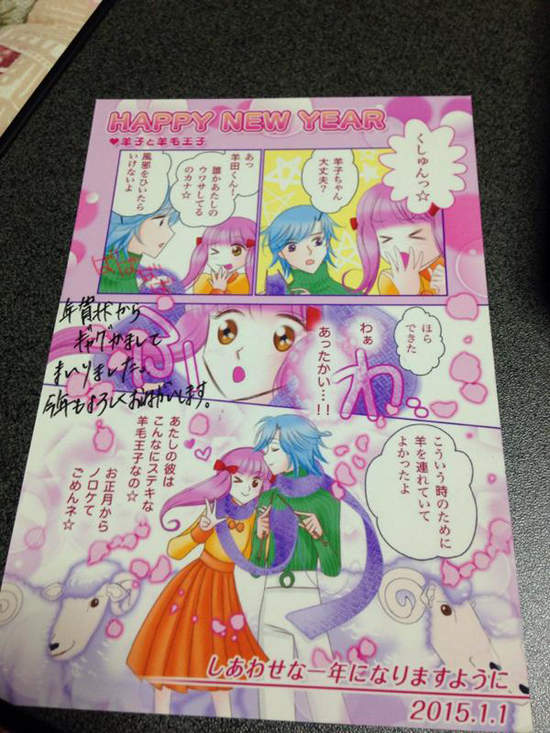 HAPPY NEW YEAR
♥羊子と羊毛王子
くしゅんっ☆
羊子ちゃん
大丈夫?
あっ
羊田くん…!
誰かあたしの
ウワサしてる
のカナ☆
風邪をひいたら
いけないよ
ほら
できた
ふわっ
わぁ
あったかい…!!
年賀状から
ギャグかまして
まいりました。
今年もよろしくおねがいします。
こういう時のために
羊を連れていて
よかったよ
あたしの彼は
こんなにステキな
羊毛王子なの☆
お正月から
ノロケて
ごめんネ☆
しあわせな一年になりますように
2015.1.1